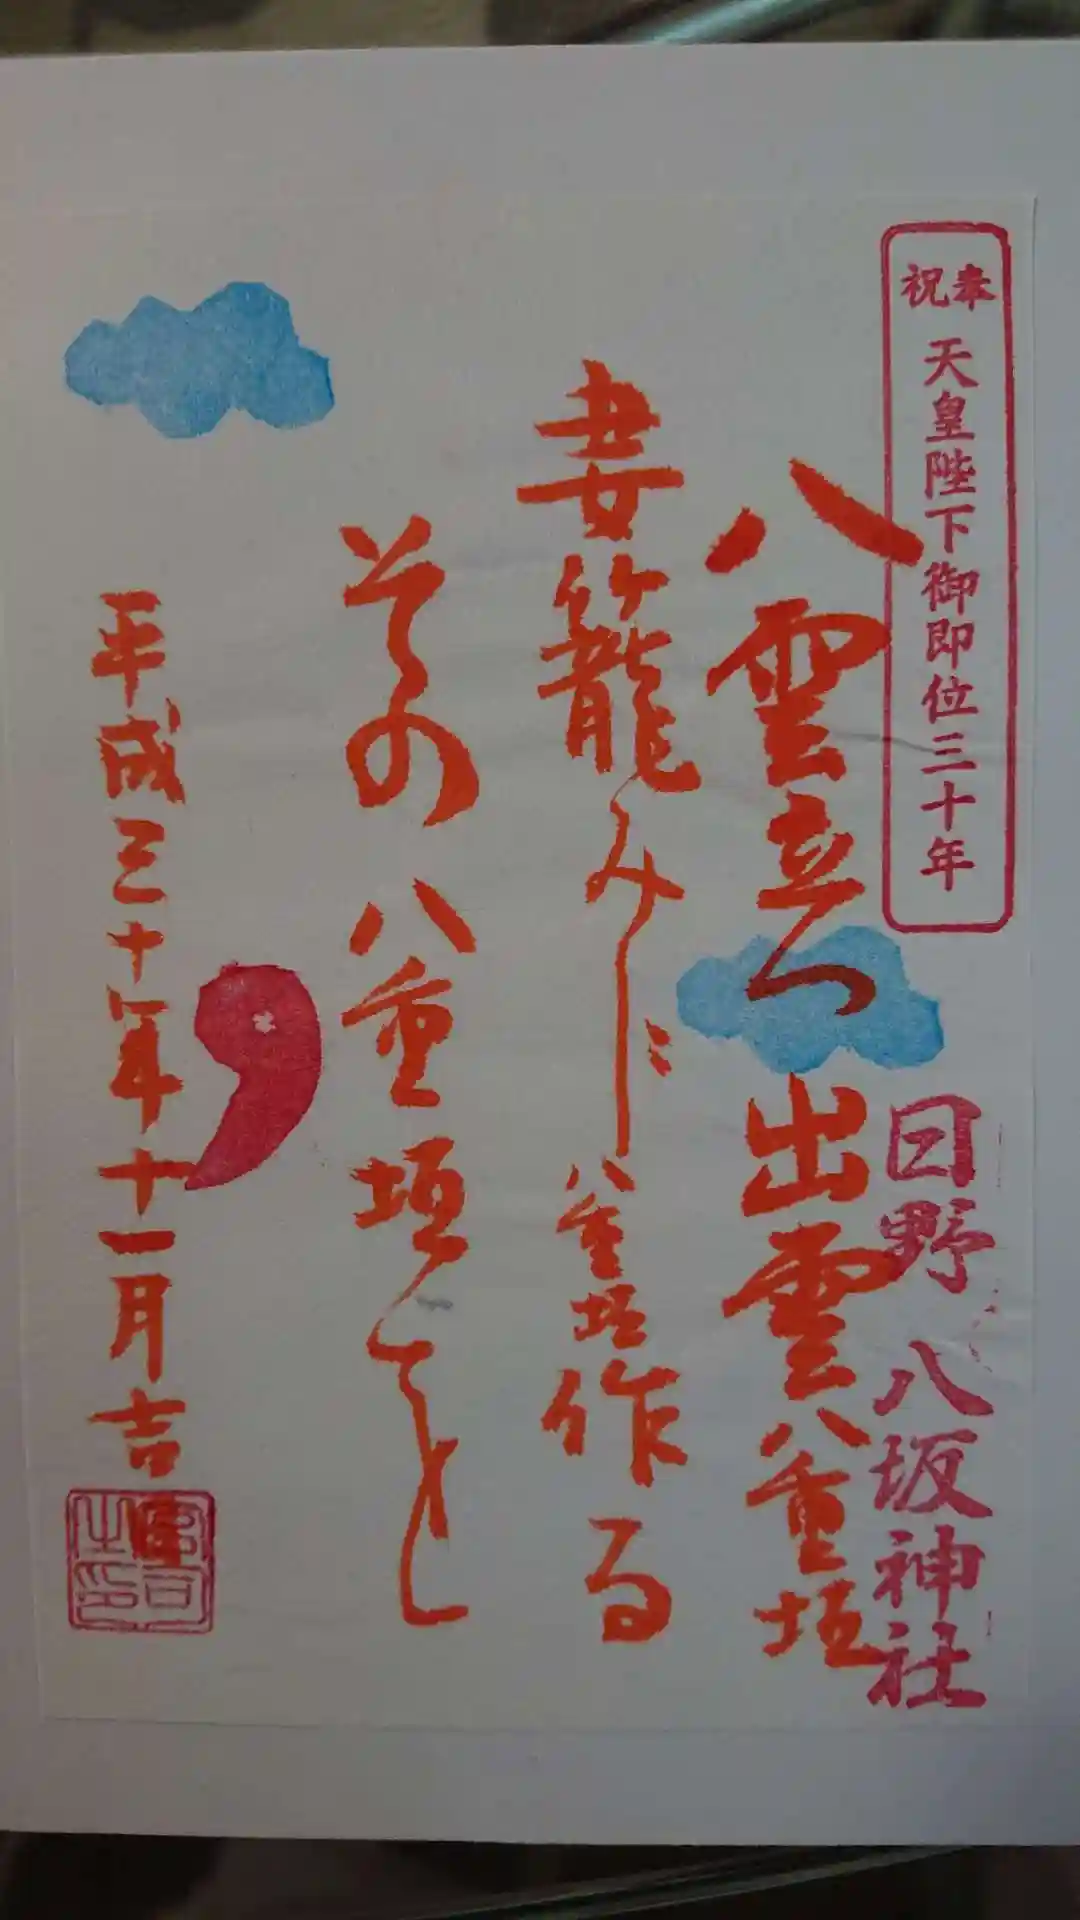 奉祝
天皇陛下御即位三十年
日野八坂神社
八雲立つ出雲八重垣
妻籠みに八重垣作る
その八重垣を
平成三十年十一月吉
宮司之印